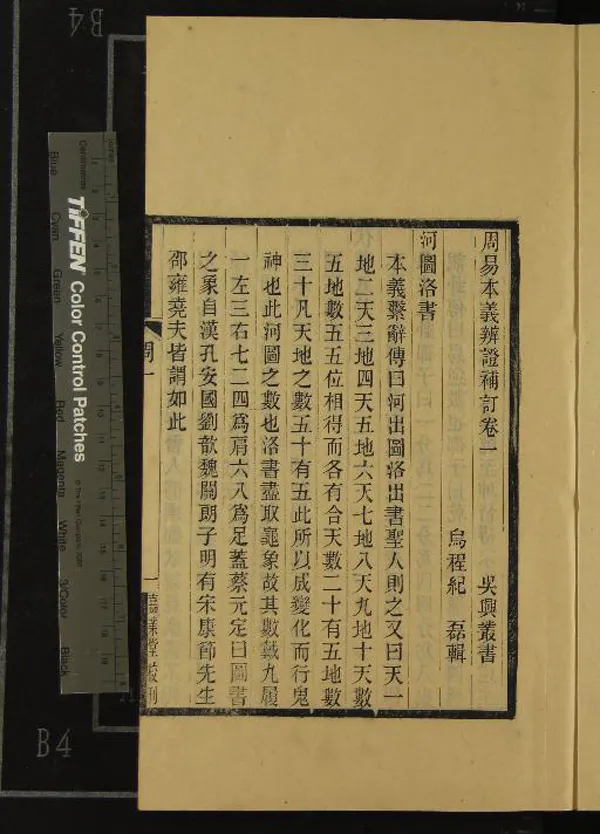 周易本義辨證補訂卷一
吳興叢書
烏程紀 磊輯
河圖洛書
本義繫辭傳曰河出圖洛出書聖人則之又曰天一
地二天三地四天五地六天七地八天九地十天數
五地數五五位相得而各有合天數二十有五地數
三十凡天地之數五十有五此所以成變化而行鬼
神也此河圖之數也洛書蓋取龜象故其數戴九履
一左三右七二四爲肩六八爲足蓋蔡元定曰圖書
之象自漢孔安國劉歆魏關朗子明有宋康節先生
邵雍堯夫皆謂如此
周一
一
嘉業堂校刊
TIFFEN Color Control Patches
Centimetres
Blue
Cyan
Green
Yellow
Red
Magenta
White
3/Color
Black
B4
B4